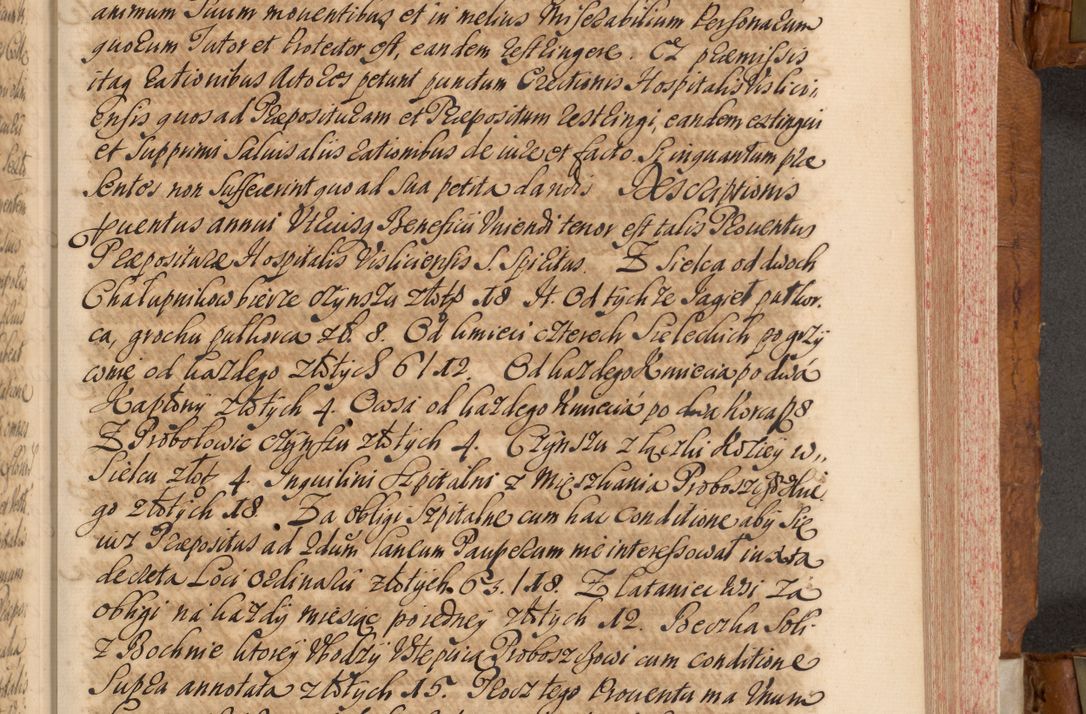 animum Suum moventibus et in melius Miserabilium Personarum
quorum Tutor et Protector est, eandem restringere. Ex præmissis
itaq rationibus Actores petunt punctum Erectionis Hospitalis Vislici,,
ensis quo ad Præposituram et Præpositum restringi, eandem extingui
et Supprimi Salvis aliis rationibus de iure et facto. Si inquantum præ
sentes non Sufficerent quo ad Sua petita dandis
puentus annui Utriusq Beneficii Uniendi tenor est talis Proventus
Præpositure Hospitalis Visliciensis S. Spiritus. Z Sielca od dwoch
Chałupnikow bierze czynszu złotp 18. It. Od tychże Jagieł puthor,
ca, grochu puthorca zł. 8. Od kmieci czterech Sieleckich po grzy
wnie od każdego złotych 6/12. Od każdego Kmiecia po dwa
Kapłony złotych 4. Owsa od każdego kmiecia po dwa korca 8
Z Probołowic czynszu złotych 4. Czynszu z łączki Rolley w,,
Sielcu złot. 4. Inquilini Szpitalni z Mięszkania
go złotych 18. Za obligi Szpitalne cum hac conditione aby Się
iusz Præpositus ad Edum lancum Pauperum nie interessował iuxta
decreta Loci Ordinarii złotych 63./18. Z
obligi na każdy miesiąc poiedney złotych 12. Beczka Soli
z Bochnie ktorey Proboszczowi cum conditione
Supra annotata złotych 15. Procz tego Proventu ma Unum